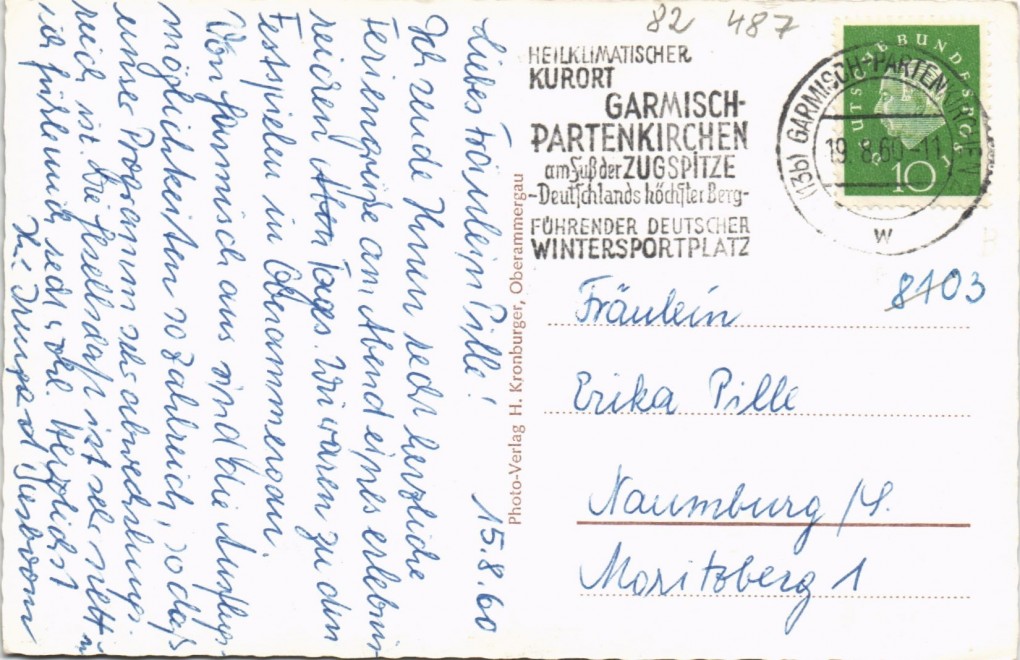 82 487
HEILKLIMATISCHER
KURORT
GARMISCH-
PARTENKIRCHEN
am Fuß der ZUGSPITZE
-Deutschlands höchster Berg-
FÜHRENDER DEUTSCHER
WINTERSPORTPLATZ
(13b) GARMISCH-PARTENKIRCHEN
19.8.60-11
w
DEUTSCHE BUNDESPOST
10
8103
Fräulein
Erika Pille
Naumburg/S.
Moritzberg 1
Photo-Verlag H. Kronburger, Oberammergau
15.8.60
Liebes Fräulein Pille!
Ich sende Ihnen recht herzliche
Feriengrüße am Abend eines erlebnis-
reichen Tages. Wir waren zu den
Festspielen in Oberammergau.
Von Garmisch aus sind die Ausflugs-
möglichkeiten so zahlreich, so daß
unser Programm sehr abwechslungs-
reich ist. Die Gesellschaft ist sehr nett u.
ich fühle mich recht wohl. Herzlichst
Ihre